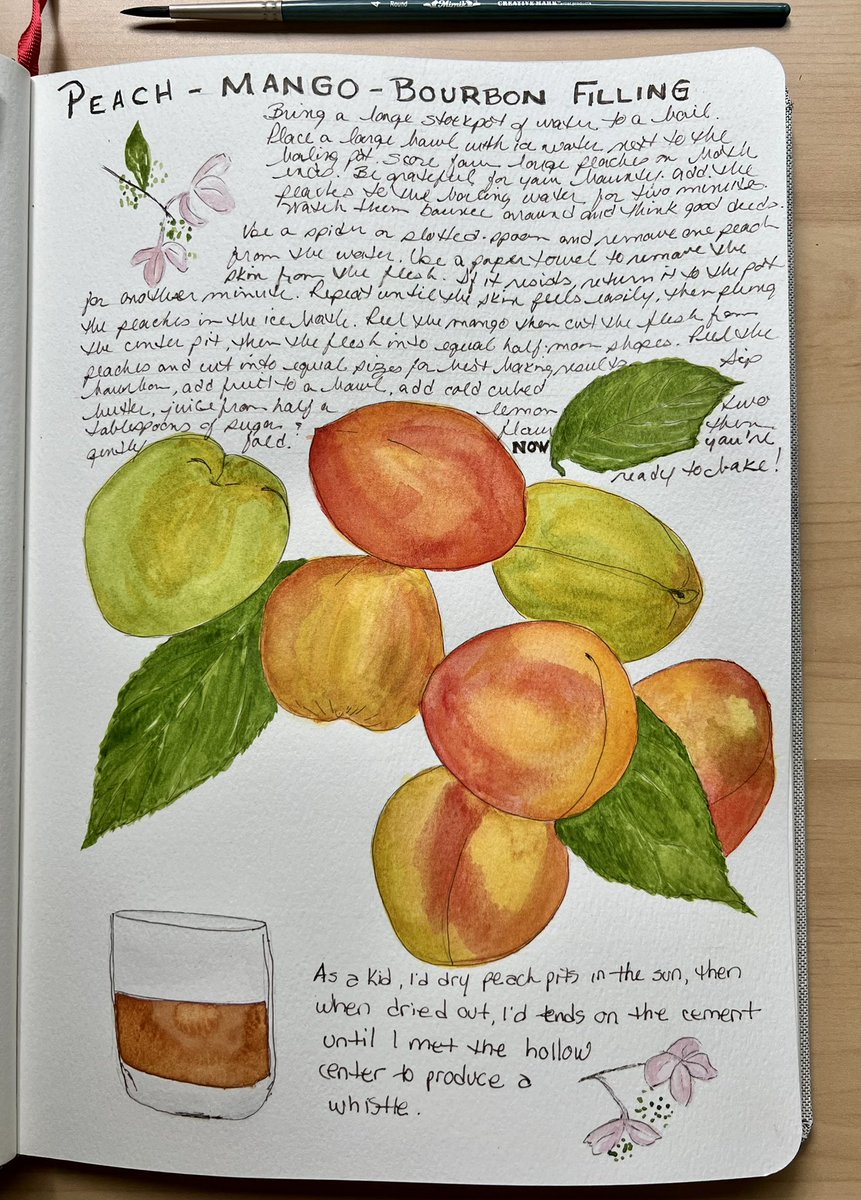 4 Round Mimik CREATIVE MARK
PEACH - MANGO - BOURBON FILLING
Bring a large stockpot of water to a boil.
Place a large bowl with ice water next to the
boiling pot. Score four large peaches on both
ends. Be grateful for your bounty. Add the
peaches to the boiling water for two minutes.
Watch them bounce around and think good deeds.
Use a spider or slotted-spoon and remove one peach
from the water. Use a paper towel to remove the
skin from the flesh. If it resists, return it to the pot
for another minute. Repeat until the skin peels easily, then plung
the peaches in the ice bath. Peel the mango then cut the flesh from
the center pit, then the flesh into equal half-moon shapes. Peel the
peaches and cut into equal sizes for best baking results. Sip
bourbon, add fruit to a bowl, add cold cubed
butter, juice from half a lemon two
tablespoons of sugar & flour then
gently fold. NOW you're
ready to bake!
As a kid, I'd dry peach pits in the sun, then
when dried out, I'd ends on the cement
until I met the hollow
center to produce a
whistle.